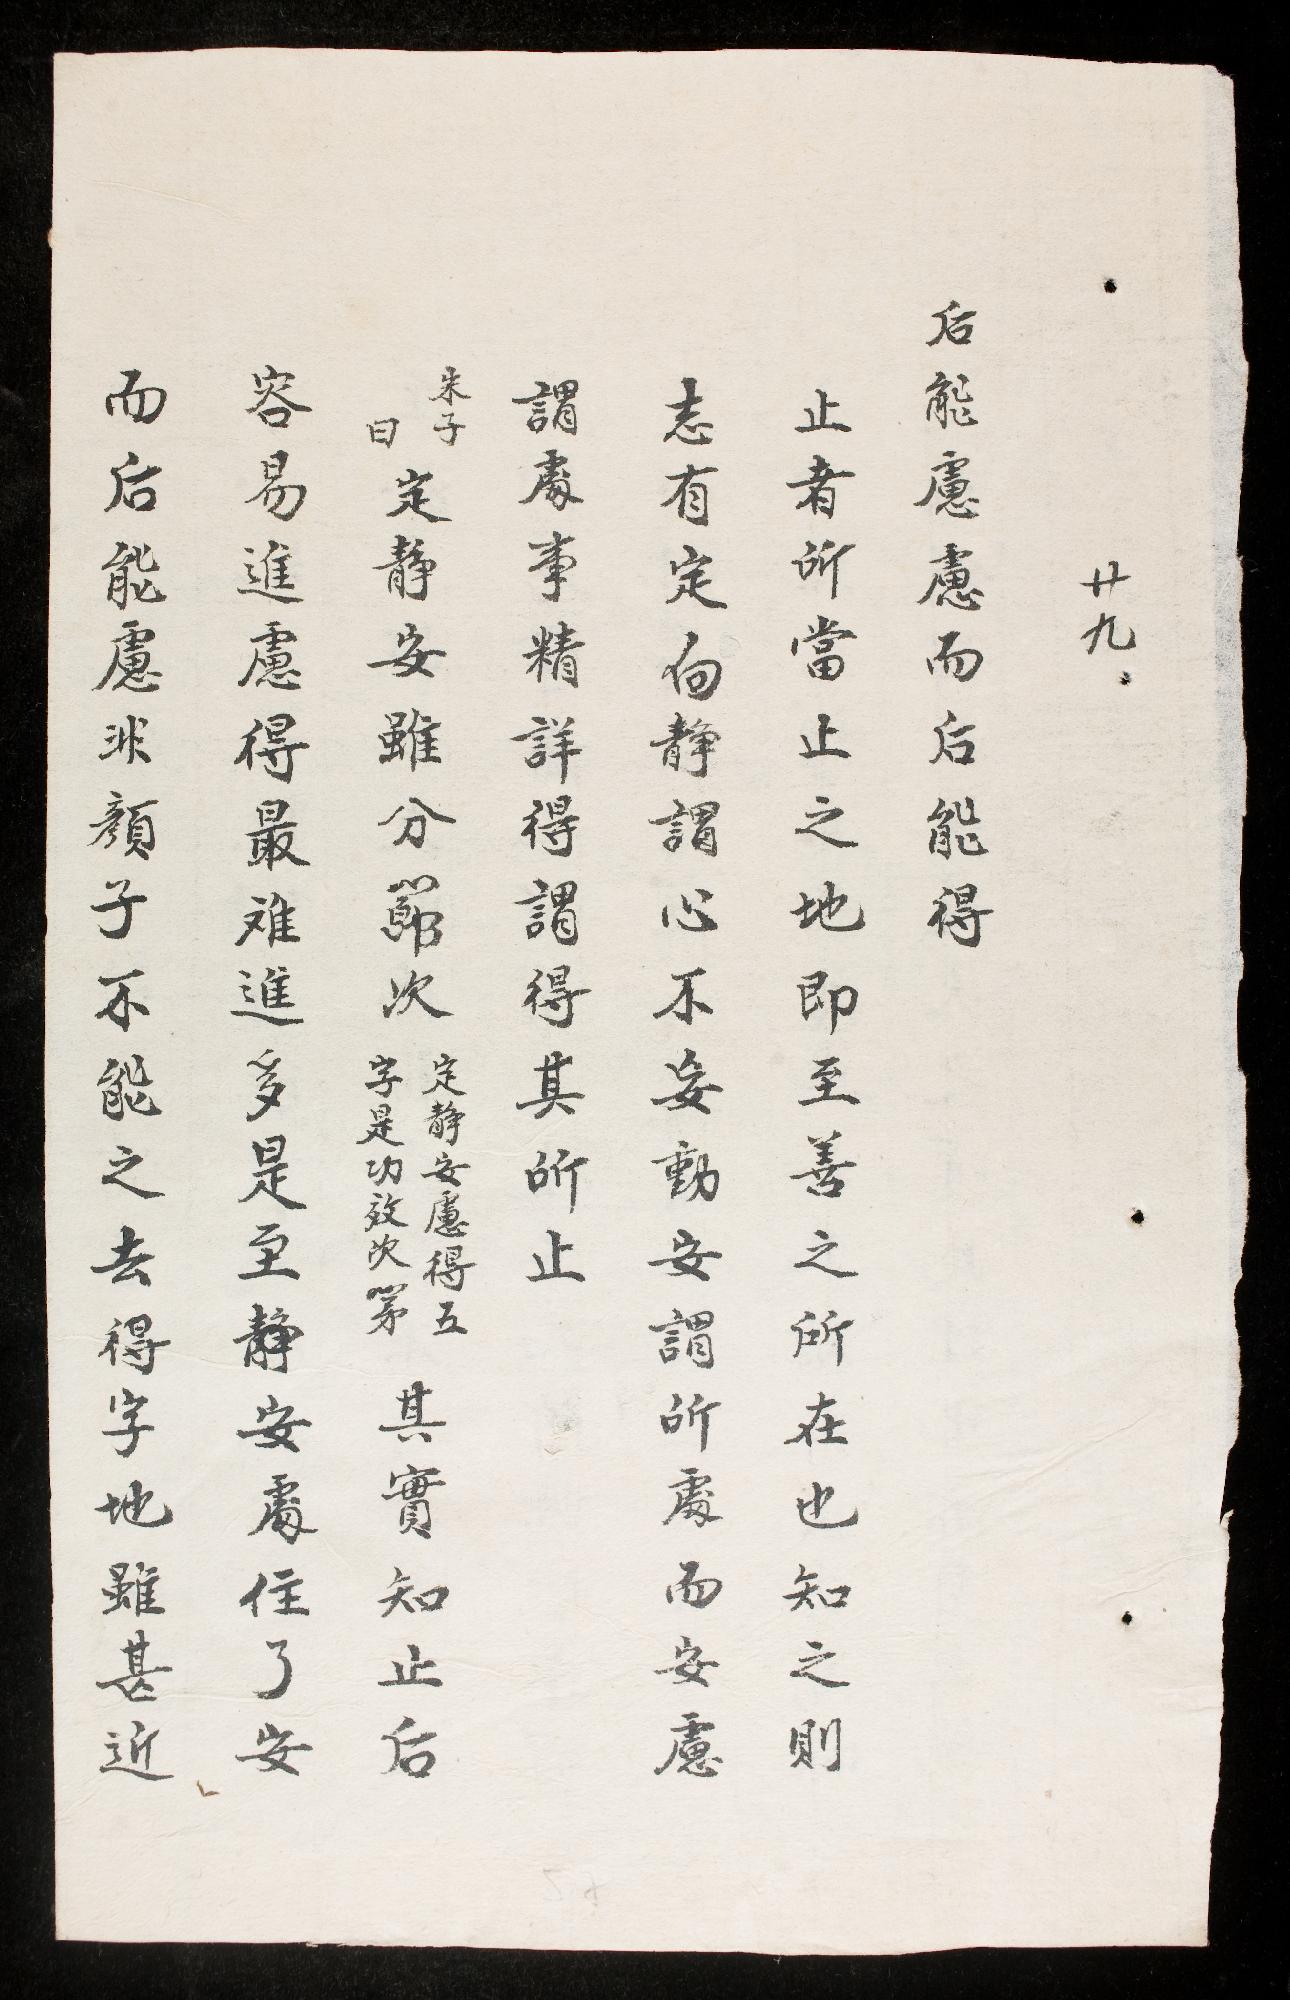 廿九
后能慮慮而后能得
止者所當止之地即至善之所在也知之則
志有定向静謂心不妄動安謂所處而安慮
謂處事精詳得謂得其所止
朱子
曰
定静安雖分節次
定静安慮得五
字是功效次第
其實知止后
容易進慮得最难進多是至静安處住了安
而后能慮非顔子不能之去得字地雖甚近